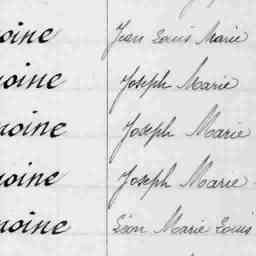 oine Jean Louis Marie
oine Joseph Marie
oine Joseph Marie
oine Joseph Marie
oine Léon Marie Louis